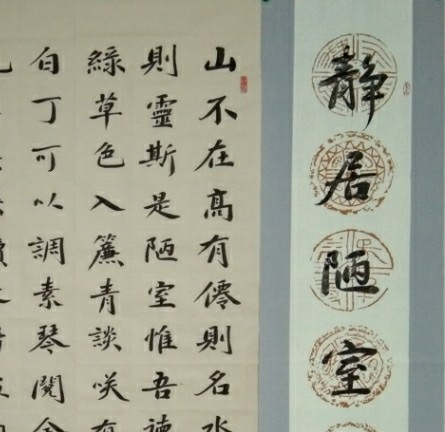 靜居陋室
山不在高有僊則名水
則靈斯是陋室惟吾
綠草色入簾青談咲有
白丁可以調素琴閱金